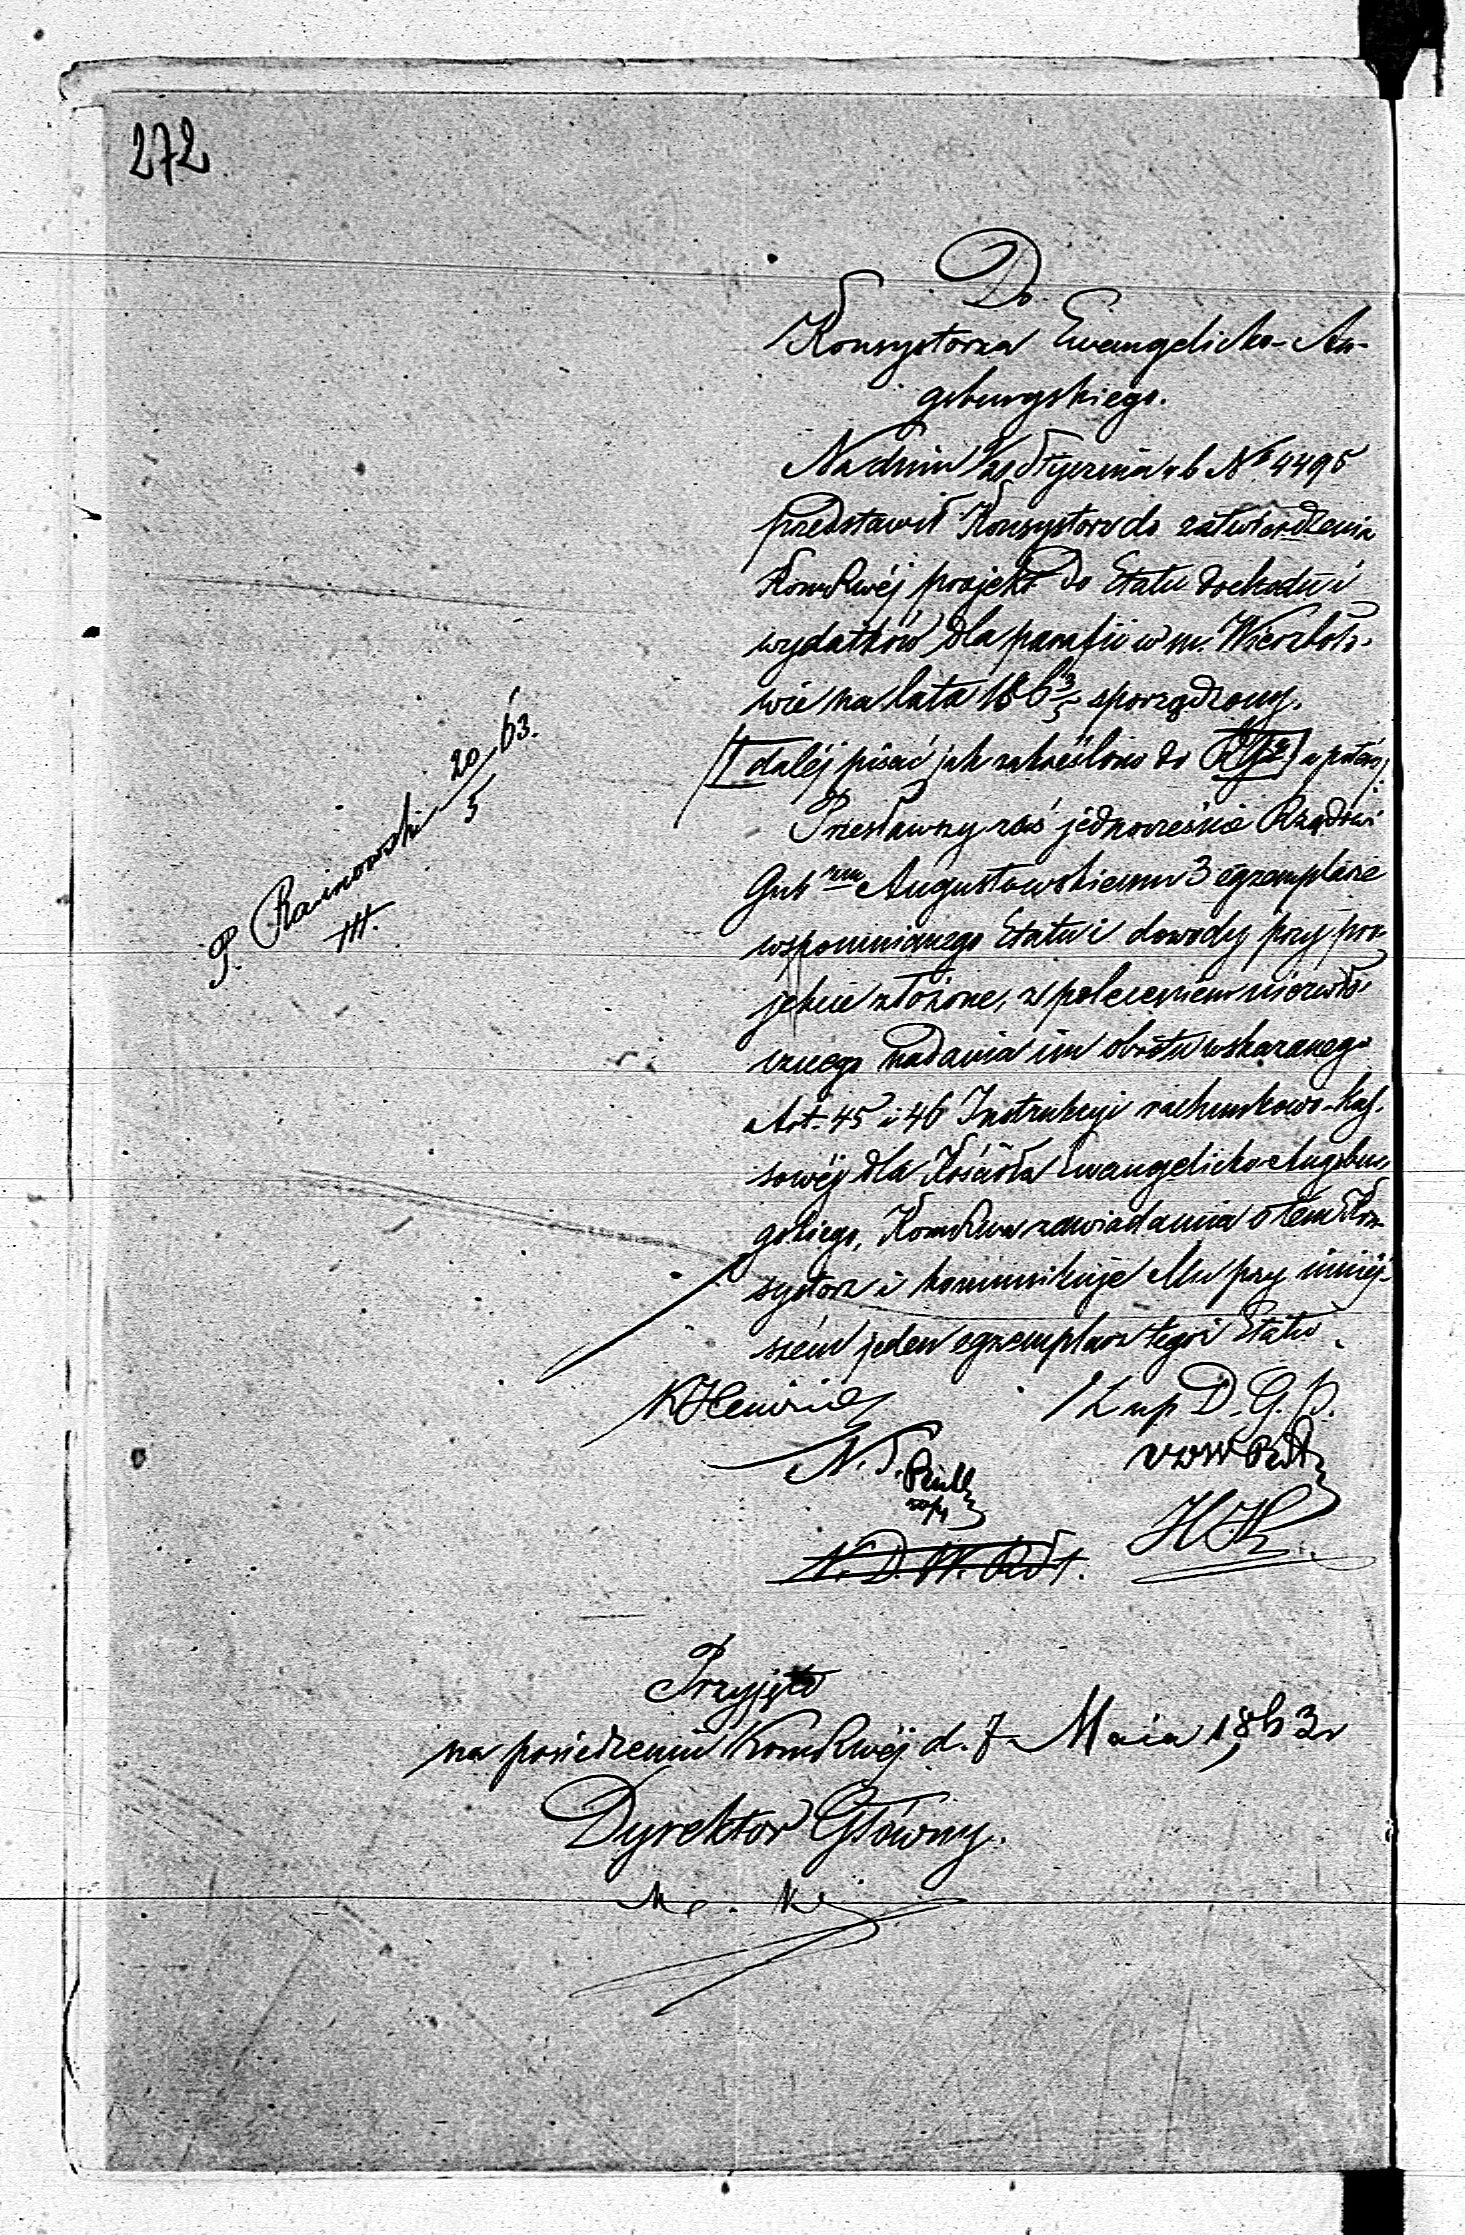 272
Do
Konsystorza Ewangelicko-Au-
gsburgskiego.
Na dniu Stycznia r b No 4495
przedstawił Konsystorz do zatwierdzenia
Kom Rwéj projekt do Etatu dochodu i
wydatków dla parafii w m. Wierzboło-
wie na lata 186 3/5 sporządzony.
daléj pisać jak zakreślono do a potém
Przesławszy zaś jednocześnie Rządowi
Gub rnu Augustowskiemu 3 egzemplarze
wspomnianego Etatu i dowody przy pro-
jekcie złożone, z poleceniem niezwło-
cznego nadania im obrotu wskazanego
Art. 45 i 46 Instrukcyi rachunkowo-Kas-
sowéj dla Kościoła Ewangelicko Augsbur-
gskiego, Kom Rwa zawiadamia o tém Kon-
systorz i kommunikuje Mu przy niniéj-
szém jeden egzemplarz tegoż Etatu.
P. Rainowski 20/5 63.
III.
K Heinrich
D. G. P.
N. S.
N. D. W. 
Przyjęto
na posiedzeniu Kom Rwéj d. 7 Maia 1863 r
Dyrektor Główny.